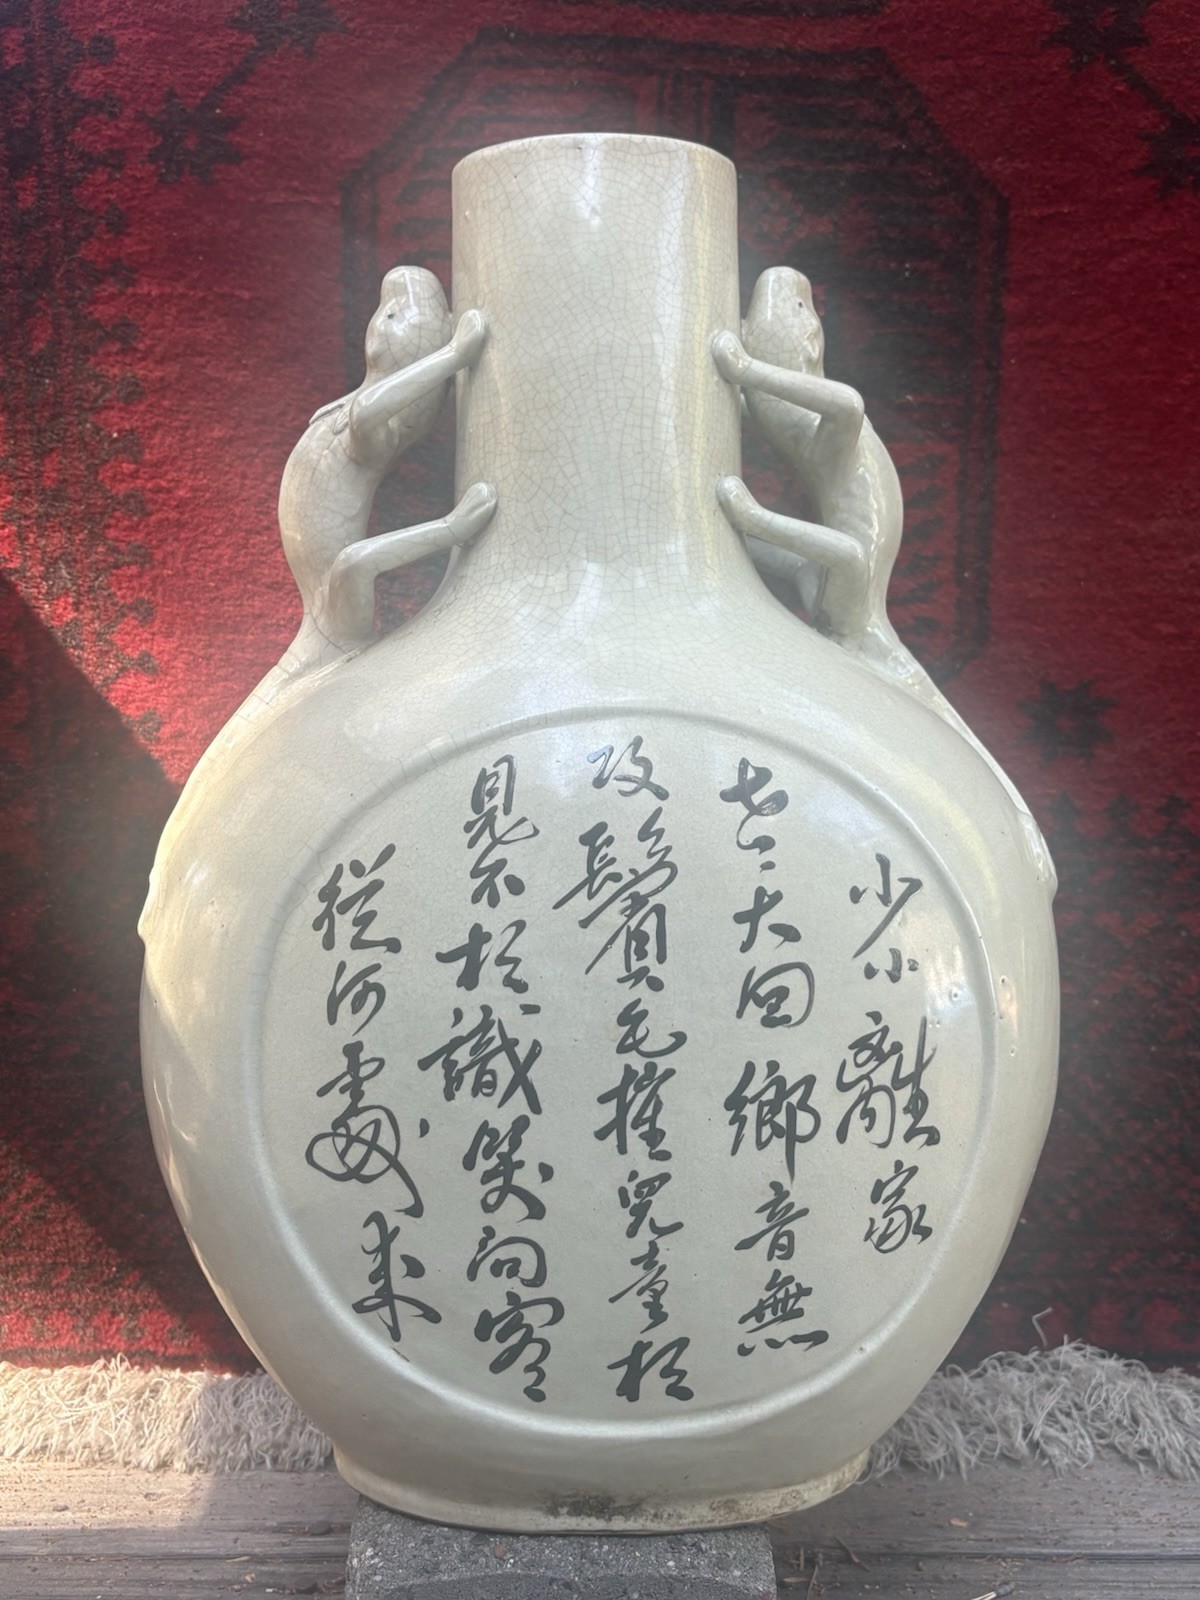 少小離家
老大回鄉音無
改鬢毛摧兒童相
見不相識笑問客
從何處來